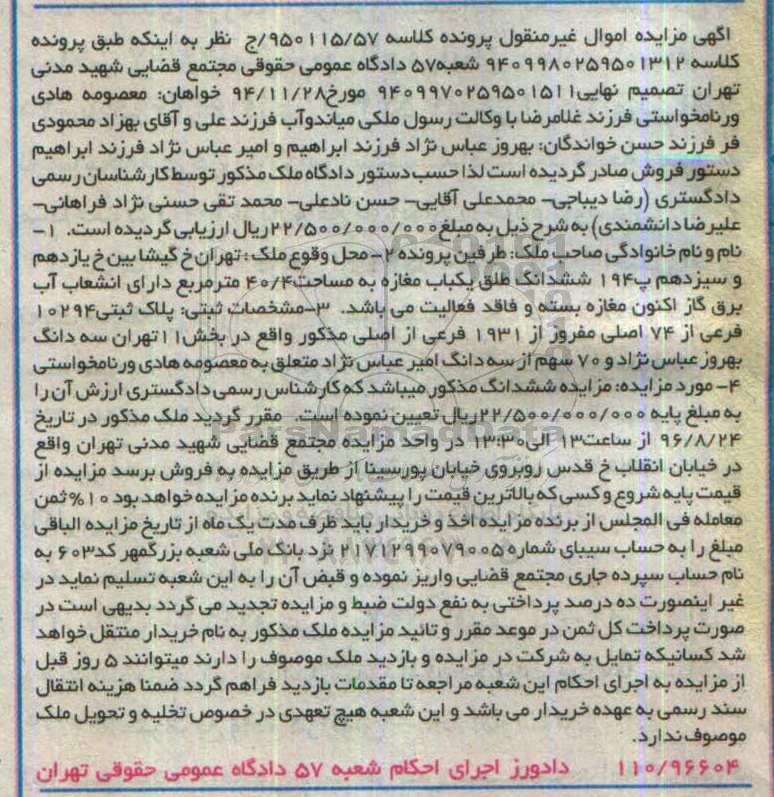 اگهی مزایده اموال غیرمنقول پرونده کلاسه ۹۵۰۱۱۵/۵۷/ج نظر به اینکه طبق پرونده
کلاسه ۹۴۰۹۹۸۰۲۵۹۵۰۱۳۱۲ شعبه۵۷ دادگاه عمومی حقوقی مجتمع قضایی شهید مدنی
تهران تصمیم نهایی۹۴۰۹۹۷۰۲۵۹۵۰۱۵۱۱ مورخ۹۴/۱۱/۲۸ خواهان: معصومه هادی
ورنامخواستی فرزند غلامرضا با وکالت رسول ملکی میاندوآب فرزند علی و آقای بهزاد محمودی
فر فرزند حسن خواندگان: بهروز عباس نژاد فرزند ابراهیم و امیر عباس نژاد فرزند ابراهیم
دستور فروش صادر گردیده است لذا حسب دستور دادگاه ملک مذکور توسط کارشناسان رسمی
دادگستری (رضا دیباجی- محمدعلی آقایی- حسن نادعلی- محمد تقی حسنی نژاد فراهانی-
علیرضا دانشمندی) به شرح ذیل به مبلغ۲۲/۵۰۰/۰۰۰/۰۰۰ریال ارزیابی گردیده است. ۱-
نام و نام خانوادگی صاحب ملک: طرفین پرونده ۲- محل وقوع ملک: تهران خ گیشا بین خ یازدهم
و سیزدهم پ۱۹۴ ششدانگ طلق یکباب مغازه به مساحت۴۰/۴ مترمربع دارای انشعاب آب
برق گاز اکنون مغازه بسته و فاقد فعالیت می باشد. ۳-مشخصات ثبتی: پلاک ثبتی۱۰۲۹۴
فرعی از ۷۴ اصلی مفروز از ۱۹۳۱ فرعی از اصلی مذکور واقع در بخش۱۱تهران سه دانگ
بهروز عباس نژاد و ۷۰ سهم از سه دانگ امیر عباس نژاد متعلق به معصومه هادی ورنامخواستی
۴- مورد مزایده: مزایده ششدانگ مذکور میباشد که کارشناس رسمی دادگستری ارزش آن را
به مبلغ پایه ۲۲/۵۰۰/۰۰۰/۰۰۰ریال تعیین نموده است. مقرر گردید ملک مذکور در تاریخ
۹۶/۸/۲۴ از ساعت۱۳ الی۱۳:۳۰ در واحد مزایده مجتمع قضایی شهید مدنی تهران واقع
در خیابان انقلاب خ قدس روبروی خیابان پورسینا از طریق مزایده به فروش برسد مزایده از
قیمت پایه شروع و کسی که بالاترین قیمت را پیشنهاد نماید برنده مزایده خواهد بود ۱۰%ثمن
معامله فی المجلس از برنده مزایده اخذ و خریدار باید ظرف مدت یک ماه از تاریخ مزایده الباقی
مبلغ را به حساب سیبای شماره۲۱۷۱۲۹۹۰۷۹۰۰۵ نزد بانک ملی شعبه بزرگمهر کد۶۰۳ به
نام حساب سپرده جاری مجتمع قضایی واریز نموده و قبض آن را به این شعبه تسلیم نماید در
غیر اینصورت ده درصد پرداختی به نفع دولت ضبط و مزایده تجدید می گردد بدیهی است در
صورت پرداخت کل ثمن در موعد مقرر و تائید مزایده ملک مذکور به نام خریدار منتقل خواهد
شد کسانیکه تمایل به شرکت در مزایده و بازدید ملک موصوف را دارند میتوانند ۵ روز قبل
از مزایده به اجرای احکام این شعبه مراجعه تا مقدمات بازدید فراهم گردد ضمنا هزینه انتقال
سند رسمی به عهده خریدار می باشد و این شعبه هیچ تعهدی در خصوص تخلیه و تحویل ملک
موصوف ندارد.
۱۱۰/۹۶۶۰۴ دادورز اجرای احکام شعبه ۵۷ دادگاه عمومی حقوقی تهران